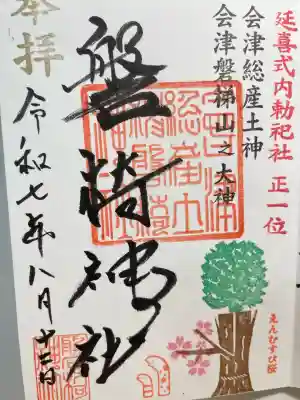 延喜式内勅祀社 正一位
会津総産土神
会津磐梯山之大神
奉拝
磐椅神社
令和七年八月十三日
えんむすび桜